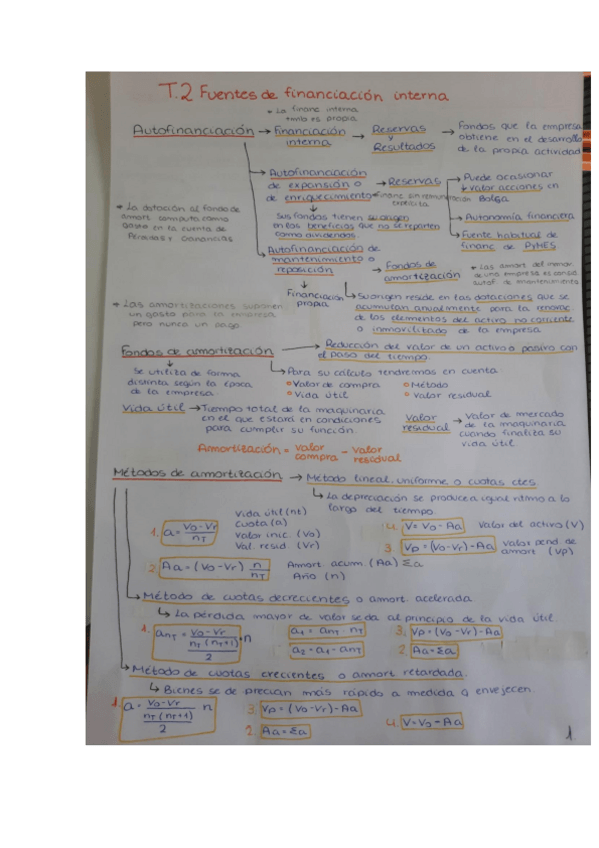 T.2 Fuentes de financiación interna
* La financ interna
tmb es propia
Autofinanciación → Financiación interna → Reservas y Resultados → Fondos que la empresa
obtiene en el desarrollo
de la propia actividad
Autofinanciación
de expansión o
de enriquecimiento → Reservas
financ sin remuneración
explícita
Puede ocasionar
↓ valor acciones en
Bolsa
Autonomía financiera
Fuente habitual de
financ de PyMES
Sus fondos tienen su origen
en los beneficios que no se reparten
como dividendos.
* La dotación al fondo de
amort computa como
gasto en la cuenta de
Pérdidas y Ganancias
Autofinanciación de
mantenimiento o
reposición → Fondos de
amortización
* Las amort del inmov.
de una empresa es consid
autof. de mantenimiento
Financiación
propia
Su origen reside en las dotaciones que se
acumulan anualmente para la renovac
de los elementos del activo no corriente
o inmovilizado de la empresa
* Las amortizaciones suponen
un gasto para la empresa
pero nunca un pago.
Fondos de amortización → Reducción del valor de un activo o pasivo con
el paso del tiempo.
Se utiliza de forma
distinta según la época
de la empresa
Para su cálculo tendremos en cuenta
Valor de compra
Método
Vida útil
Valor residual
Vida útil → Tiempo total de la maquinaria
en el que estará en condiciones
para cumplir su función.
Valor
residual → Valor de mercado
de la maquinaria
cuando finaliza su
vida útil
Amortización = Valor compra - Valor residual
Métodos de amortización → Método lineal, uniforme, o cuotas ctes
↳ La depreciación se produce a igual ritmo a lo
largo del tiempo.
1. a = Vo-Vr / nT
Vida útil (nt)
cuota (a)
Valor inic. (Vo)
Val. resid. (Vr)
4. V = Vo - Aa Valor del activo (V)
3. Vp = (Vo-Vr) - Aa Valor pend. de
amort (Vp)
2. Aa = (Vo-Vr) n / nT
Amort. acum. (Aa) Σa
Año (n)
Método de cuotas decrecientes o amort. acelerada
↳ La pérdida mayor de valor se da al principio de la vida útil.
1. anT = Vo-Vr / (nT (nT+1) / 2) · n
a1 = anT · nT
a2 = a1 - anT
3. Vp = (Vo-Vr) - Aa
2. Aa = Σa
Método de cuotas crecientes o amort retardada.
↳ Bienes se deprecian más rápido a medida q envejecen.
1. a = Vo-Vr / (nT (nT+1) / 2) n
3. Vp = (Vo-Vr) - Aa
2. Aa = Σa
4. V = Vo - Aa
1